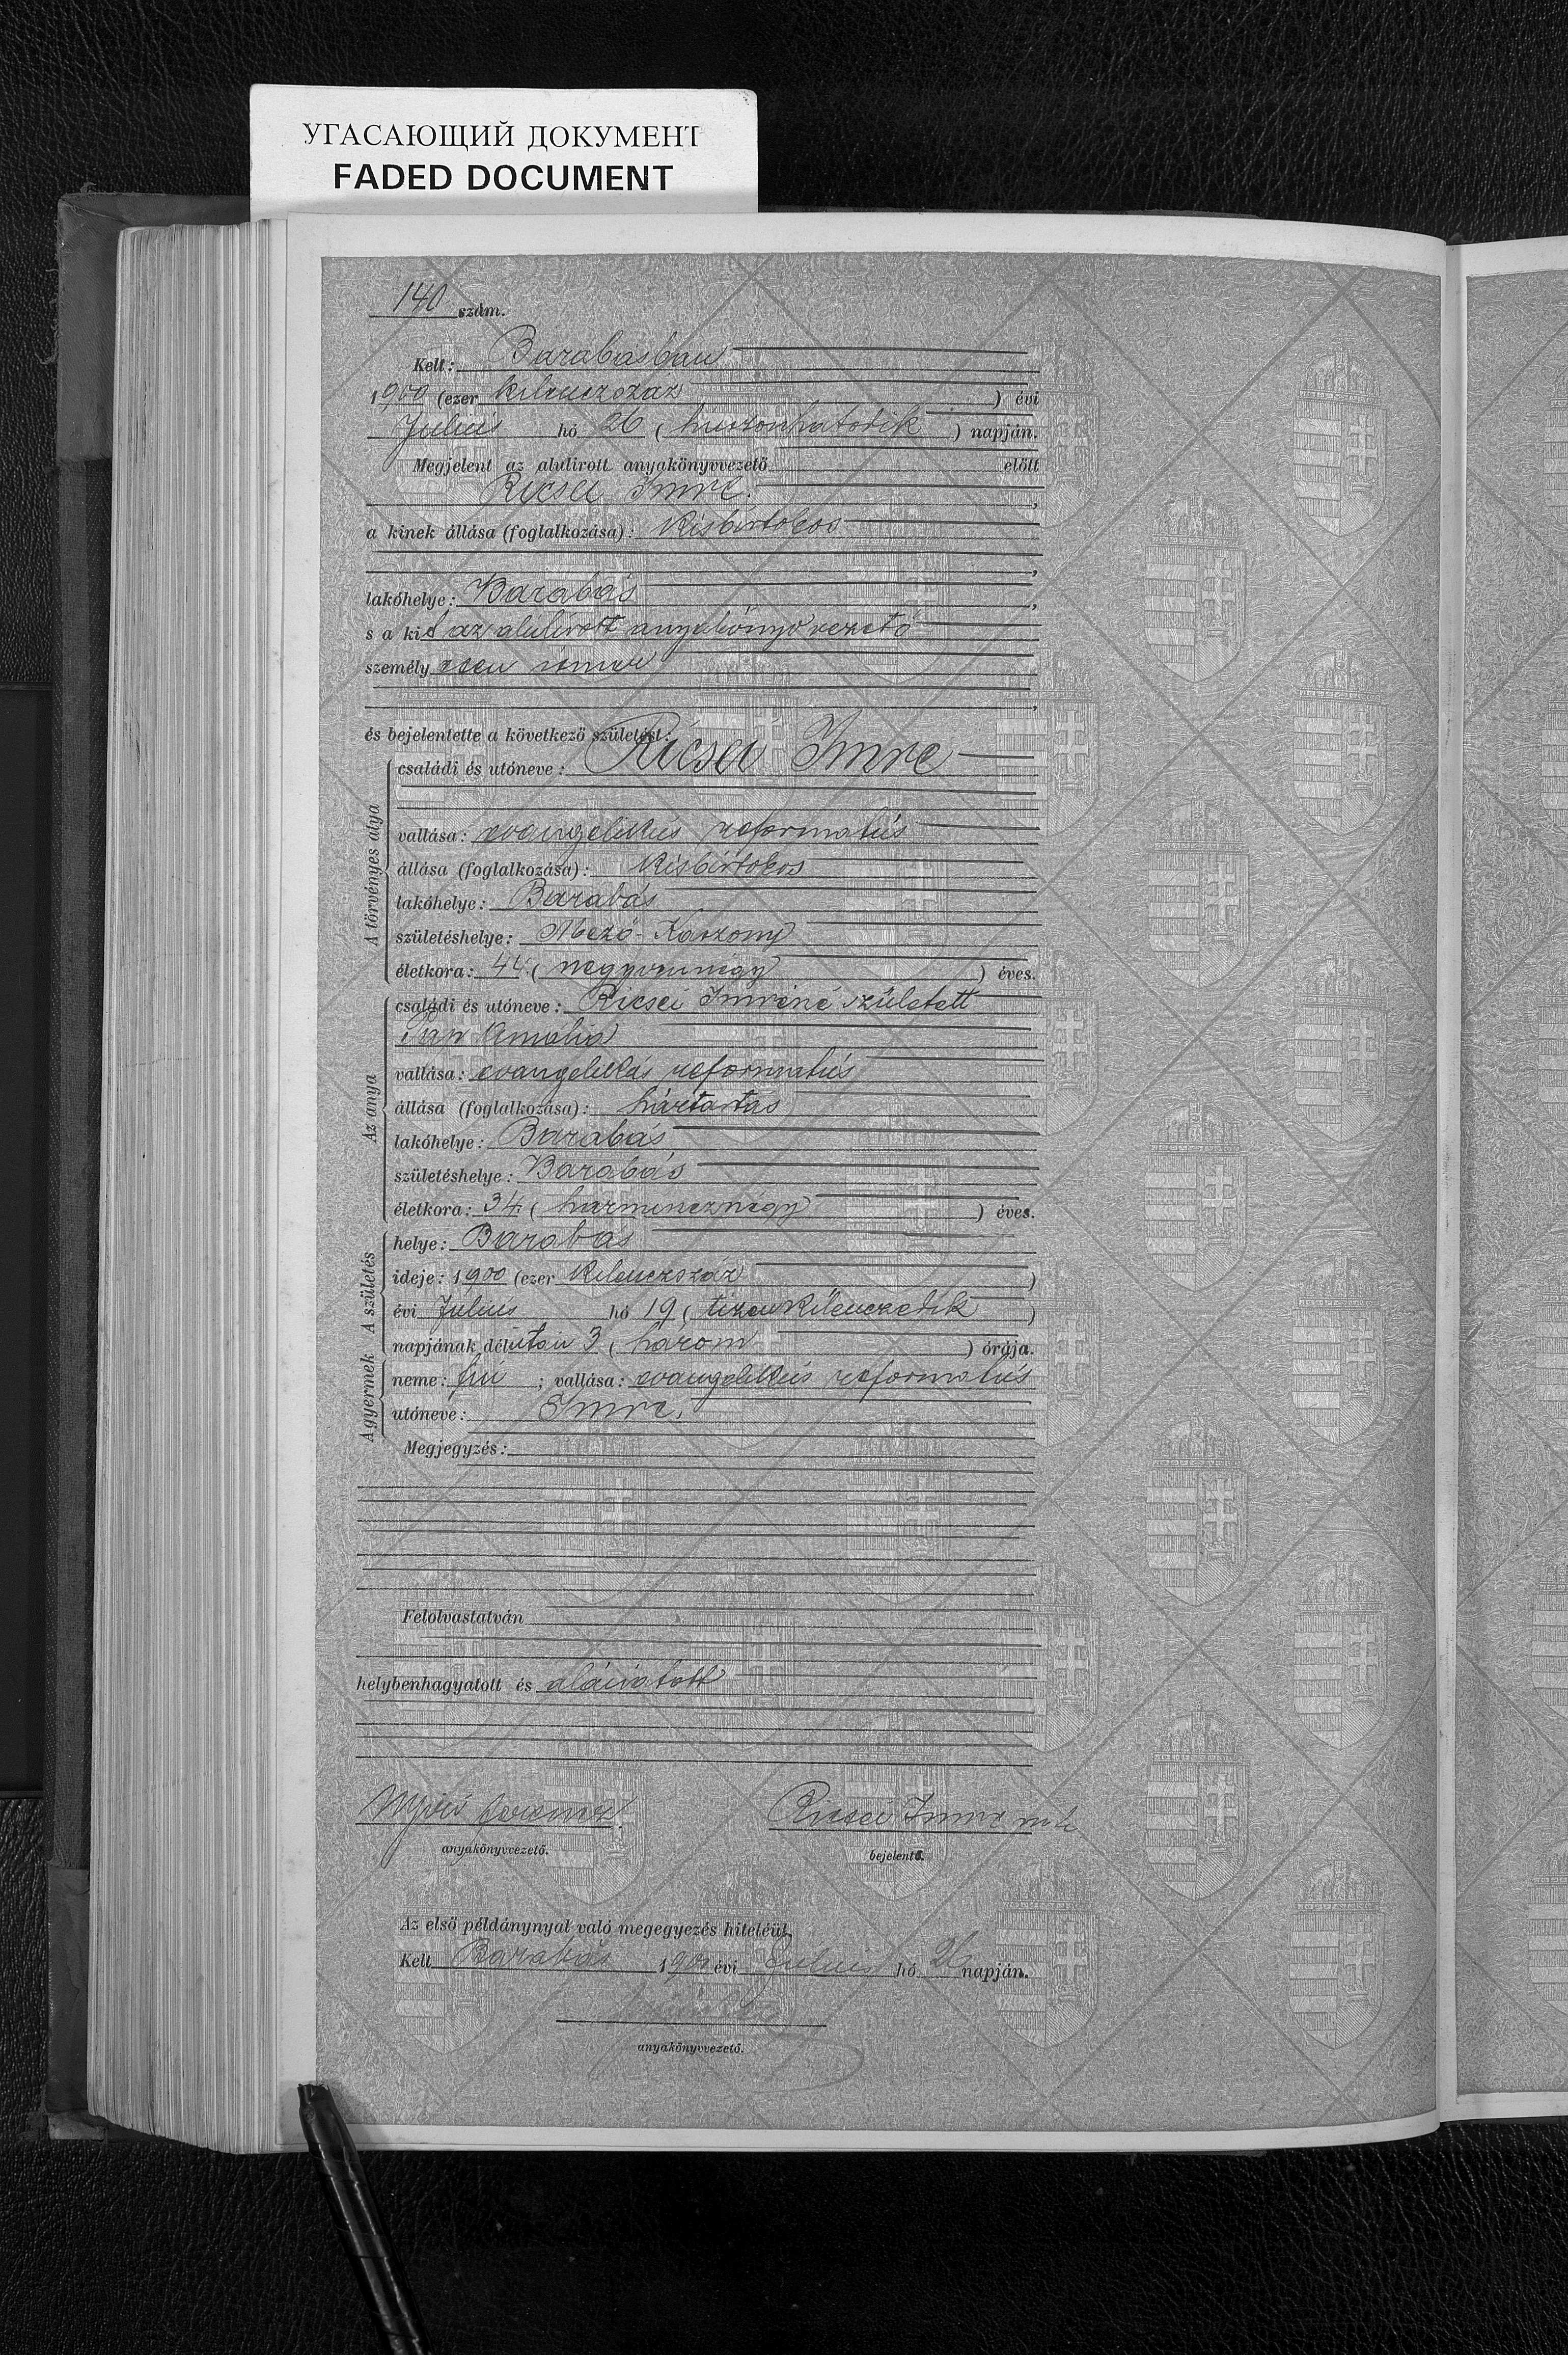 УГАСАЮЩИЙ ДОКУМЕНТ
FADED DOCUMENT
140 szám.
Kelt: Barabásban
1900 (ezer kilenczszáz) évi
Julius hó 26 (huszonhatodik) napján.
Megjelent az alulirott anyakönyvvezető előtt
Ricsei Imre.
a kinek állása (foglalkozása): Kisbirtokos
lakóhelye: Barabás
s a kit az alulirott anyakönyvvezető
személyesen ismer
és bejelentette a következő születést:
A törvényes atya
családi és utóneve: Ricsei Imre
vallása: evangelikus reformatus
állása (foglalkozása): Kisbirtokos
lakóhelye: Barabás
születéshelye: Mező-Kaszony
életkora: 44 (negyvennégy) éves.
Az anya
családi és utóneve: Ricsei Imréné született
Pap Amalia
vallása: evangelikus reformatus
állása (foglalkozása): háztartás
lakóhelye: Barabás
születéshelye: Barabás
életkora: 34 (harmincznégy) éves.
A születés
helye: Barabás
ideje: 1900 (ezer kilenczszáz)
évi Julius hó 19 (tizenkilenczedik)
napjának délután 3 (három) órája.
A gyermek
neme: fiú; vallása: evangelikus reformatus
utóneve: Imre.
Megjegyzés:
Felolvastatván
helybenhagyatott és aláiratott
Ricsei Imre mk
anyakönyvvezető.
bejelentő.
Az első példánynyal való megegyezés hiteléül,
Kelt Barabás 1900 évi Julius hó 26 napján.
anyakönyvvezető.